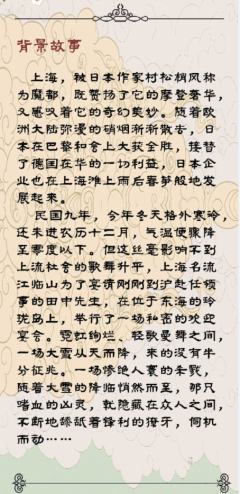 背景故事
上海，被日本作家村松梢风称
为魔都，既赞扬了它的摩登奢华，
又感叹着它的奇幻美妙。随着欧
洲大陆弥漫的硝烟渐渐散去，日
本在巴黎和会上大获全胜，接替
了德国在华的一切利益，日本企
业也在上海滩上雨后春笋般地发
展起来。
民国九年，今年冬天格外寒冷，
还未进农历十二月，气温便骤降
至零度以下。但这丝毫影响不到
上流社会的歌舞升平，上海名流
江临山为了宴请刚刚到沪赴任领
事的田中先生，在位于东海的玲
珑岛上，举行了一场秘密的欢迎
宴会。霓虹绚烂、轻歌曼舞之间，
一场大雪从天而降，来的没有半
分征兆。一场惨绝人寰的杀戮，
随着大雪的降临悄然而至，那只
嗜血的凶灵，就隐藏在众人之间，
不断地舔舐着锋利的獠牙，伺机
而动……